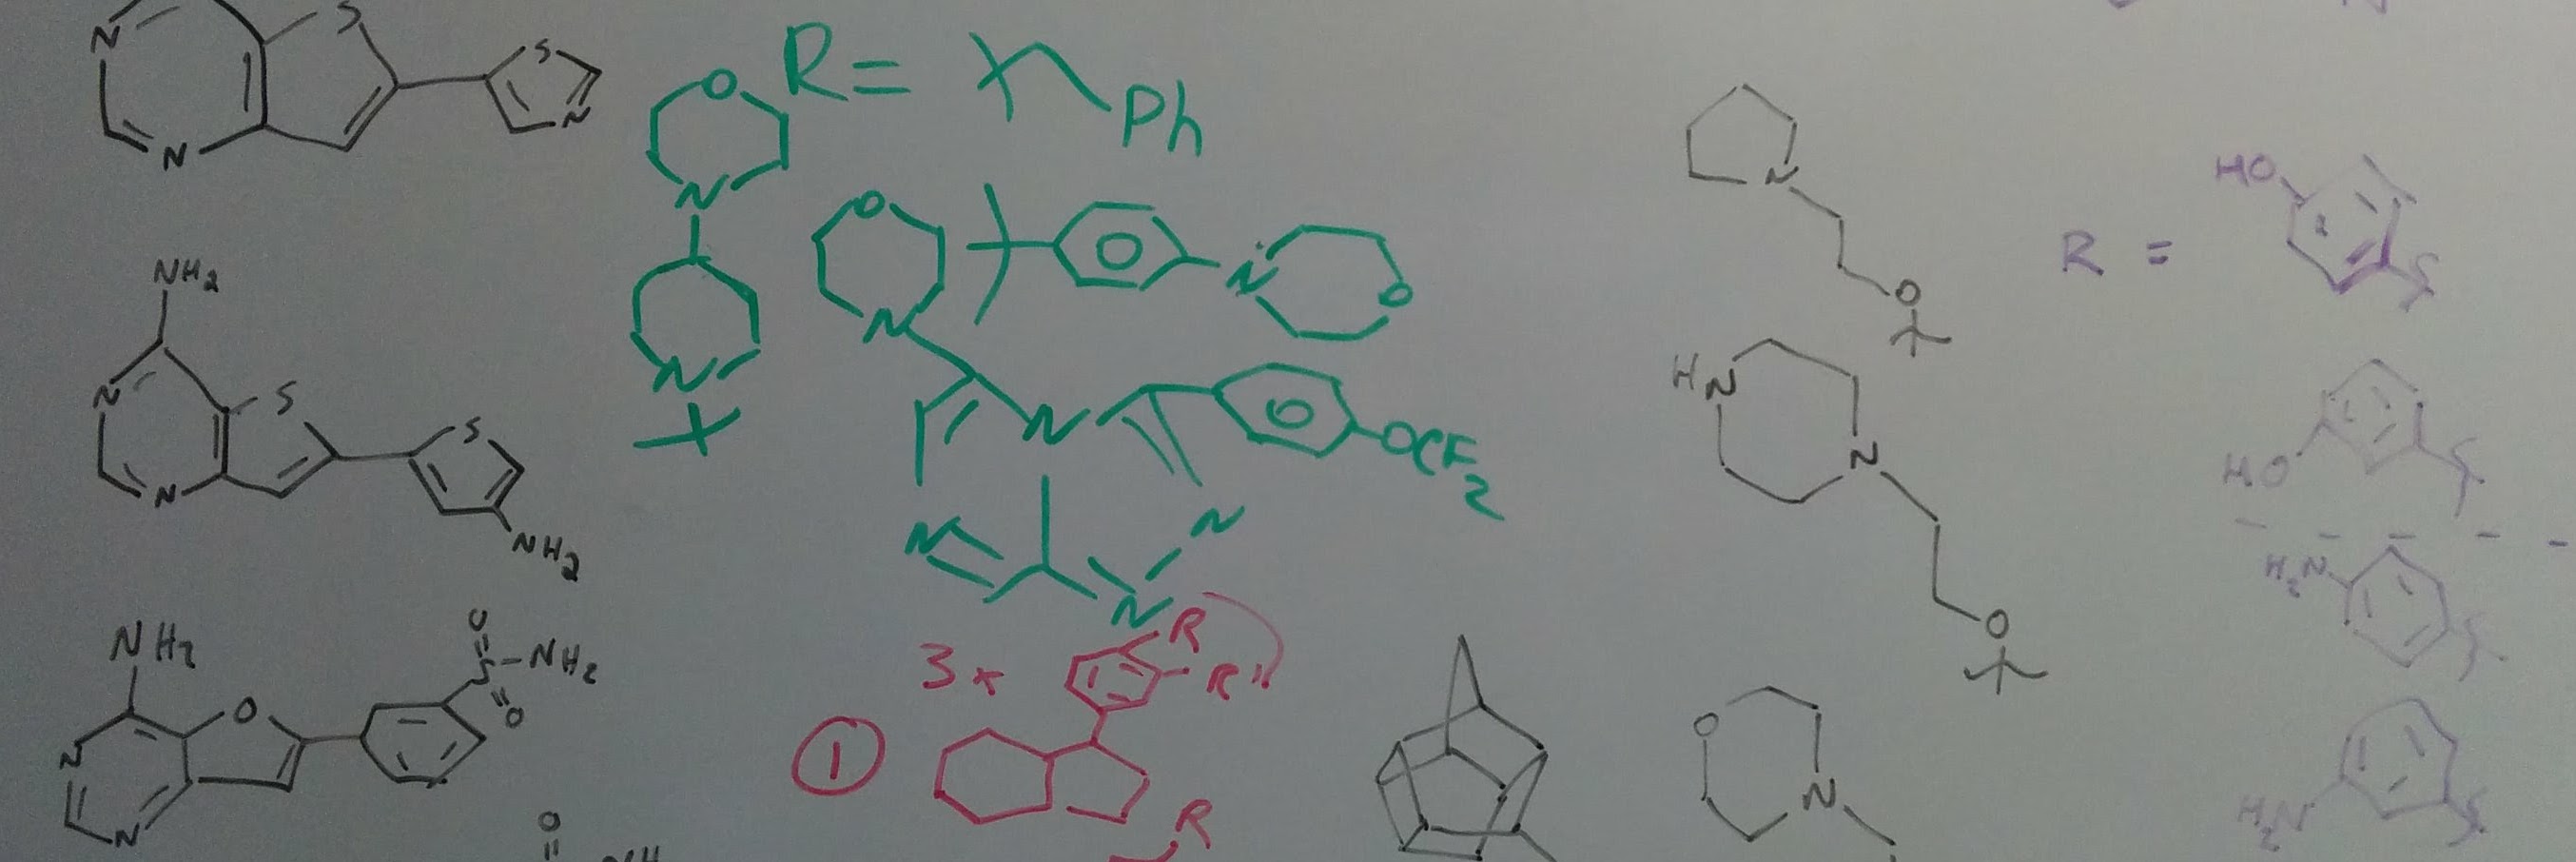 N
S
N
S
N
NH2
N
S
N
S
NH2
NH2
N
O
N
O
S-NH2
O
O
R=
Ph
O
N
N
O
N
N
O
N
OCF2
N
N
N
3x
R
R"
1
R
N
O
HN
N
O
O
N
R =
HO
HO
H2N
H2N